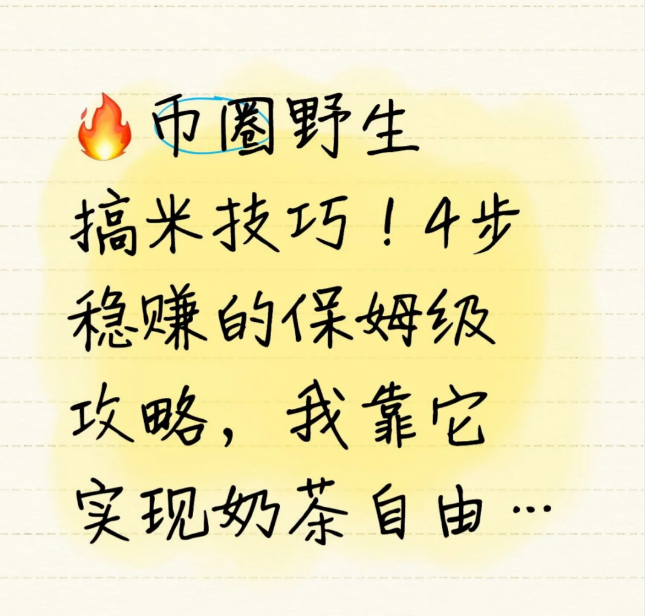 🔥币圈野生
搞米技巧！4步
稳赚的保姆级
攻略，我靠它
实现奶茶自由…